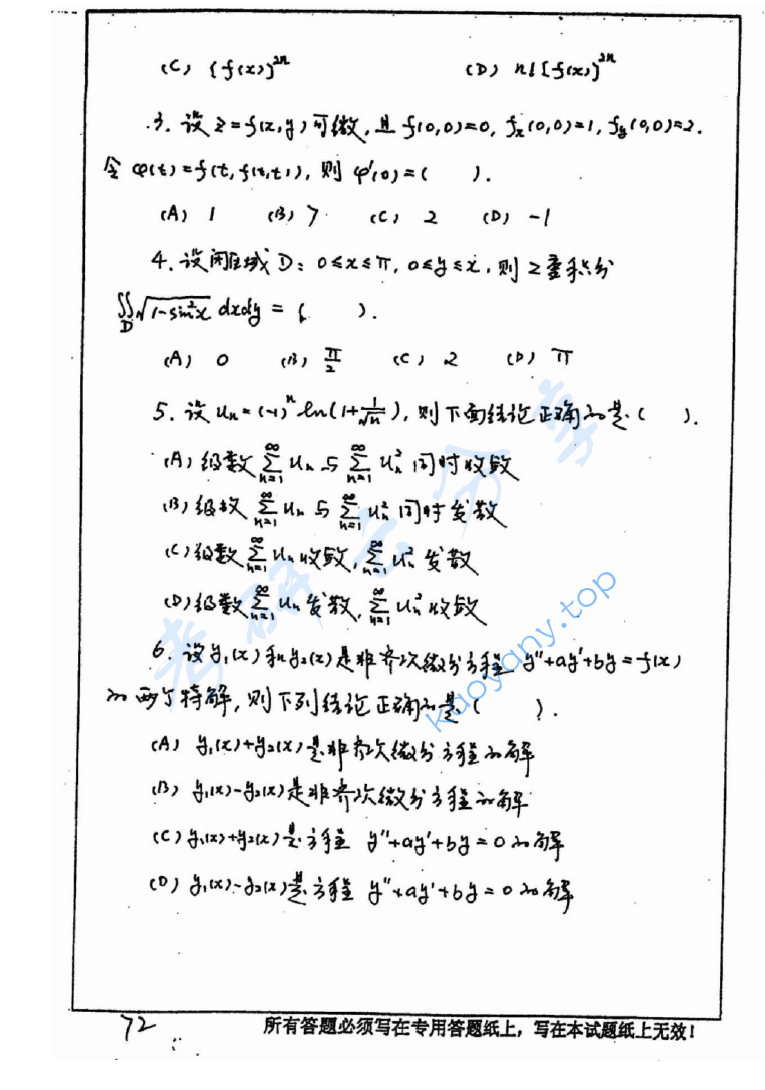 (C) [f(x)]^{2n}    (D) n![f(x)]^{2n}
3. 设 z=f(x,y) 可微, 且 f(0,0)=0, f_x(0,0)=1, f_y(0,0)=2.
令 φ(t)=f(t,f(t,t)), 则 φ'(0)=(    ).
(A) 1    (B) 7    (C) 2    (D) -1
4. 设闭区域 D: 0≤x≤π, 0≤y≤x, 则二重积分
∬_D √(1-sin²x) dxdy = (    ).
(A) 0    (B) π/2    (C) 2    (D) π
5. 设 u_n=(-1)^n ln(1+1/√n), 则下面结论正确的是 (    ).
(A) 级数 ∑_{n=1}^∞ u_n 与 ∑_{n=1}^∞ u_n² 同时收敛
(B) 级数 ∑_{n=1}^∞ u_n 与 ∑_{n=1}^∞ u_n² 同时发散
(C) 级数 ∑_{n=1}^∞ u_n 收敛, ∑_{n=1}^∞ u_n² 发散
(D) 级数 ∑_{n=1}^∞ u_n 发散, ∑_{n=1}^∞ u_n² 收敛
6. 设 y₁(x) 和 y₂(x) 是非齐次微分方程 y''+ay'+by=f(x)
的两个特解, 则下列结论正确的是 (    ).
(A) y₁(x)+y₂(x) 是非齐次微分方程的解
(B) y₁(x)-y₂(x) 是非齐次微分方程的解
(C) y₁(x)+y₂(x) 是方程 y''+ay'+by=0 的解
(D) y₁(x)-y₂(x) 是方程 y''+ay'+by=0 的解
72
所有答题必须写在专用答题纸上，写在本试题纸上无效！
考研云分享
kaoyany.top